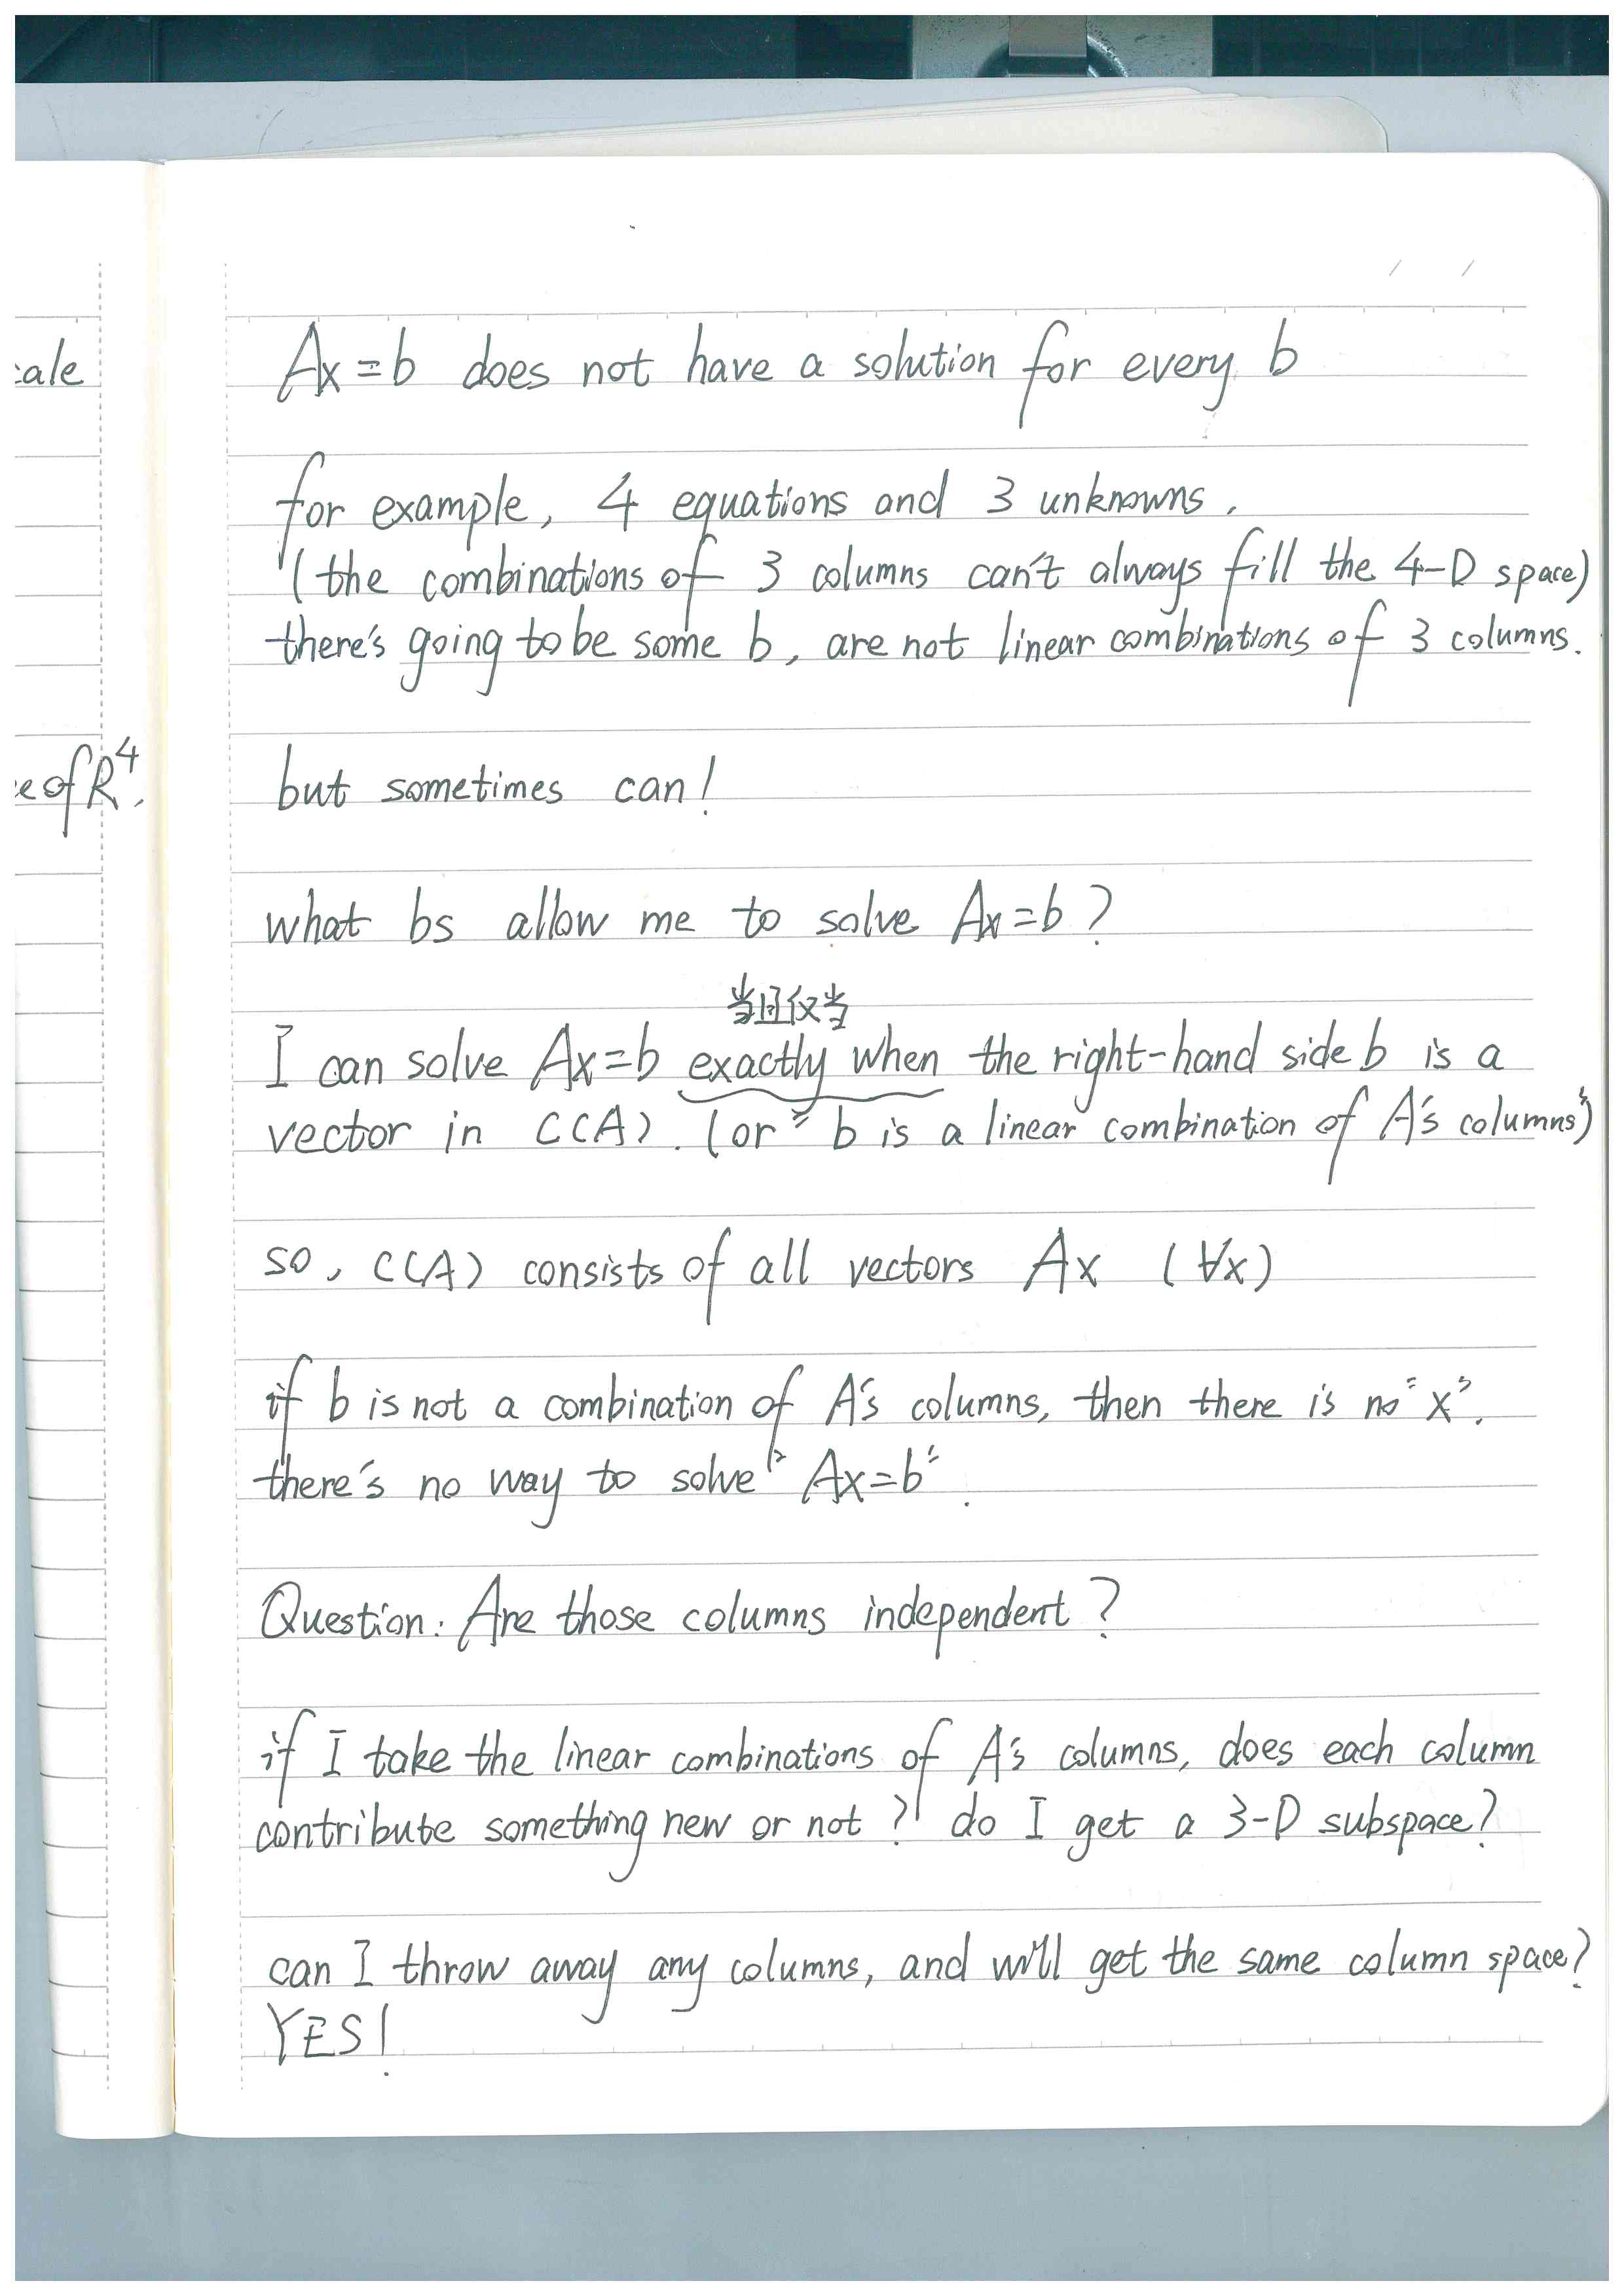 cale
e of R⁴.
Ax = b does not have a solution for every b
for example, 4 equations and 3 unknowns.
(the combinations of 3 columns can't always fill the 4-D space)
there's going to be some b, are not linear combinations of 3 columns.
but sometimes can!
what bs allow me to solve Ax=b?
当且仅当
I can solve Ax=b exactly when the right-hand side b is a
vector in C(A). (or "b is a linear combination of A's columns")
so, C(A) consists of all vectors Ax (∀x)
if b is not a combination of A's columns, then there is no "x".
there's no way to solve "Ax=b".
Question: Are those columns independent?
if I take the linear combinations of A's columns, does each column
contribute something new or not? do I get a 3-D subspace?
can I throw away any columns, and will get the same column space?
YES!